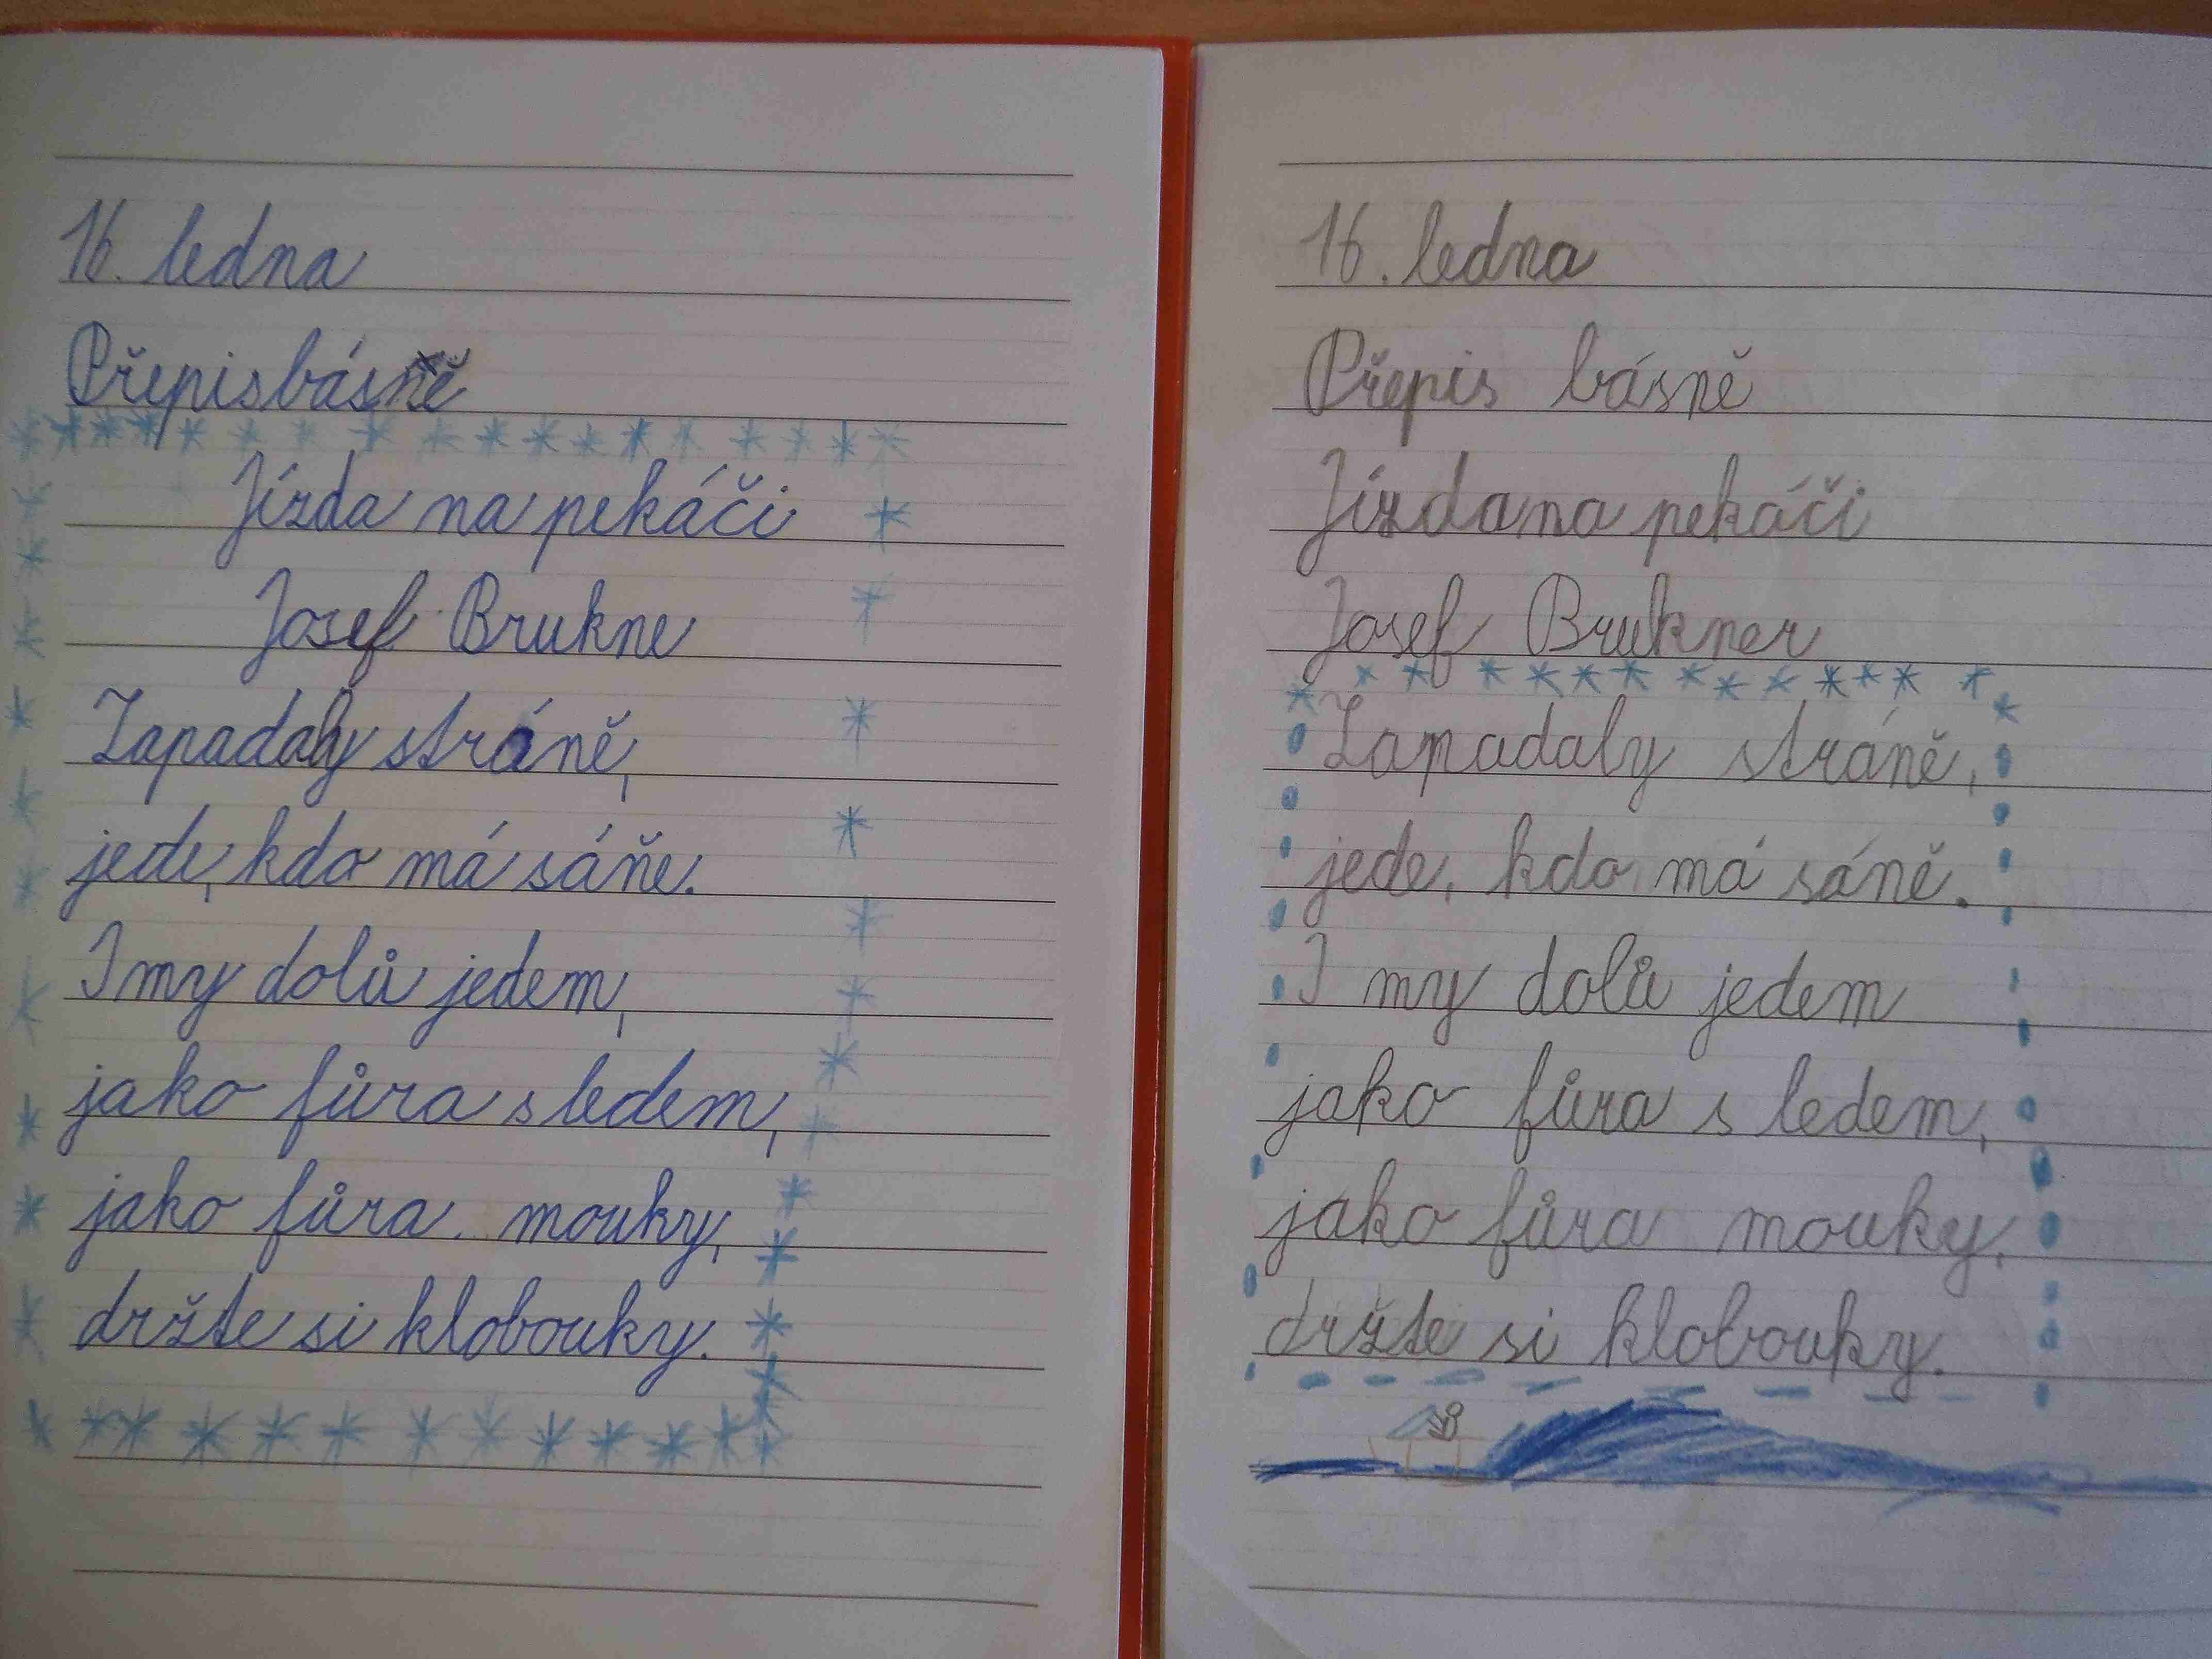 16. ledna
Přepis básně
Jízda na pekáči
Josef Brukne
Zapadaly stráně,
jede, kdo má sáňe.
I my dolů jedem,
jako fůra s ledem,
jako fůra mouky,
držte si klobouky.
16. ledna
Přepis básně
Jízda na pekáči
Josef Brukner
Zapadaly stráně,
jede, kdo má sáně.
I my dolů jedem
jako fůra s ledem,
jako fůra mouky,
držte si klobouky.